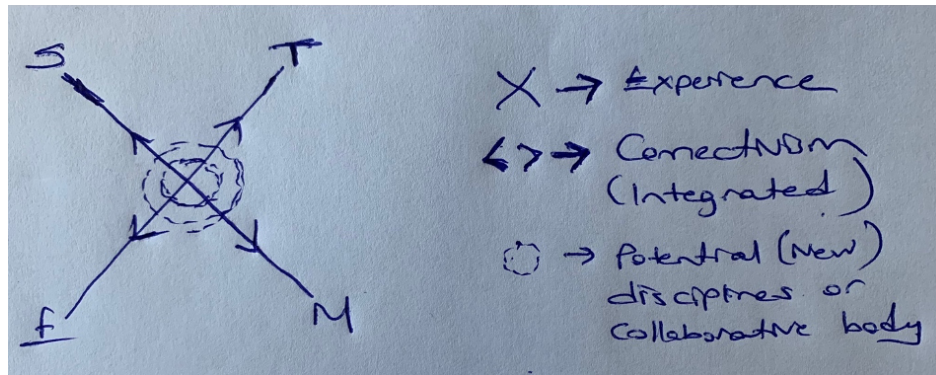 S
T
F
M
X → Experience
<> → ConnectNBM
(Integrated)
→ Potential (New)
disciplines or
collaborative body